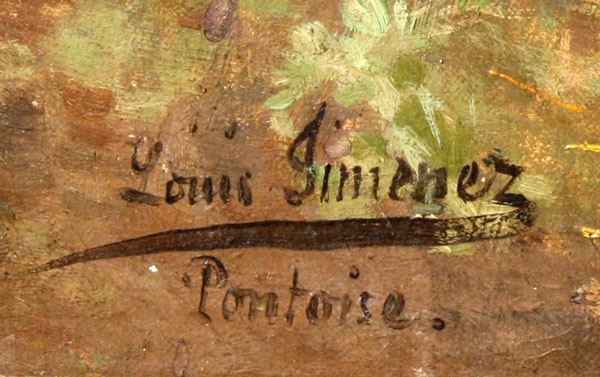 Louis Jimenez
Pontoise.